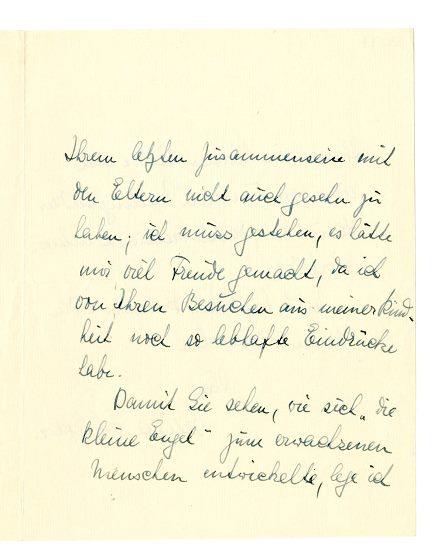 Ihrem letzten Zusammensein mit
den Eltern nicht auch gesehn zu
haben; ich muss gestehen, es hätte
mir viel Freude gemacht, da ich
von Ihren Besuchen aus meiner Kind-
heit noch so lebhafte Eindrücke
habe.
Damit Sie sehen, wie sich „die
kleine Engel" zum erwachsenen
Menschen entwickelte, lege ich